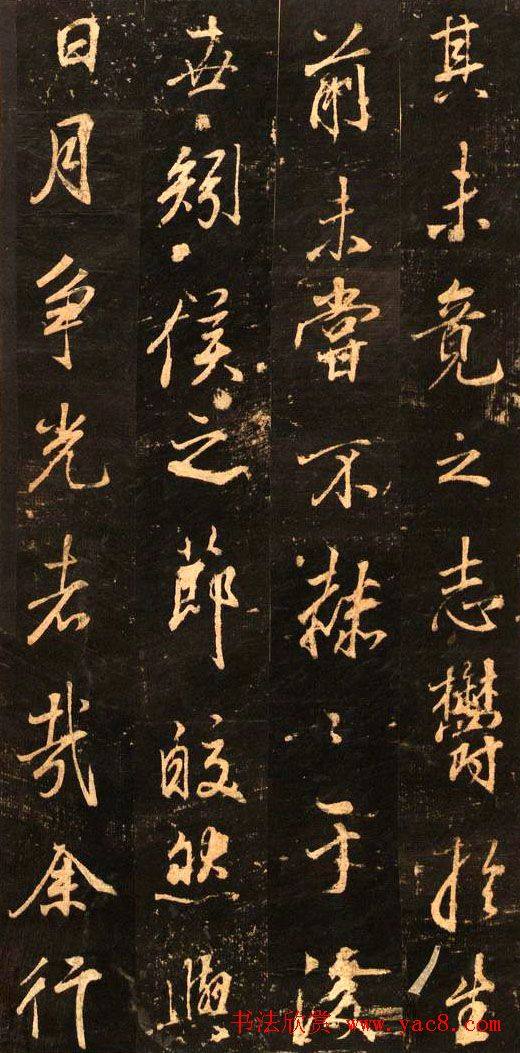 其未竟之志鬱於生
前未嘗不赫〻于後
世矧侯之節皎然與
日月争光者哉余行
书法欣赏 www.yac8.com